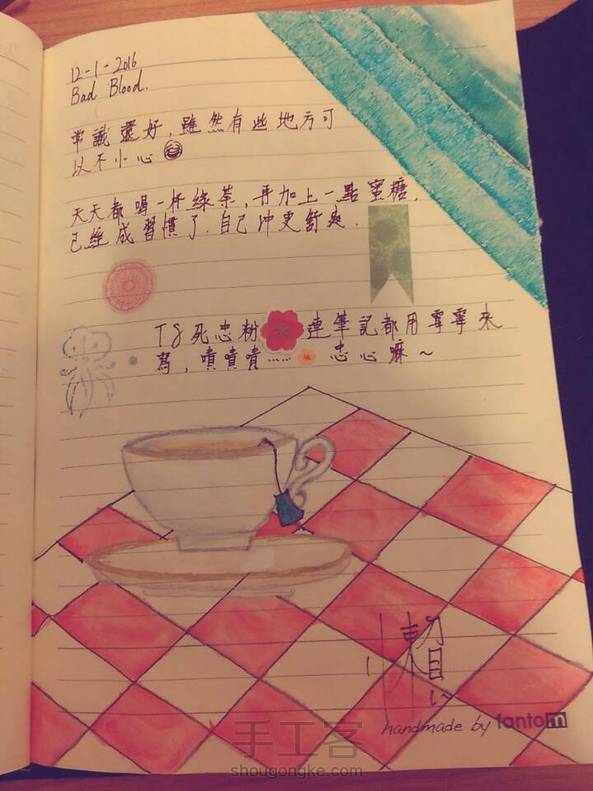 12-1-2016
Bad Blood.
常識還好，雖然有些地方可
以不小心
天天都喝一杯綠茶，再加上一點蜜糖，
已經成習慣了．自己沖更舒爽．
TS死忠粉 連筆記都用寧寧來
寫，嘖嘖嘖…… 忠心嘛～
懶
handmade by tantom
手工客
shougongke.com